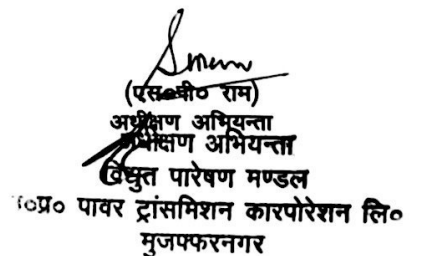 (एस०पी० राम)
अधीक्षण अभियन्ता
अधीक्षण अभियन्ता
विद्युत पारेषण मण्डल
उ०प्र० पावर ट्रांसमिशन कारपोरेशन लि०
मुजफ्फरनगर